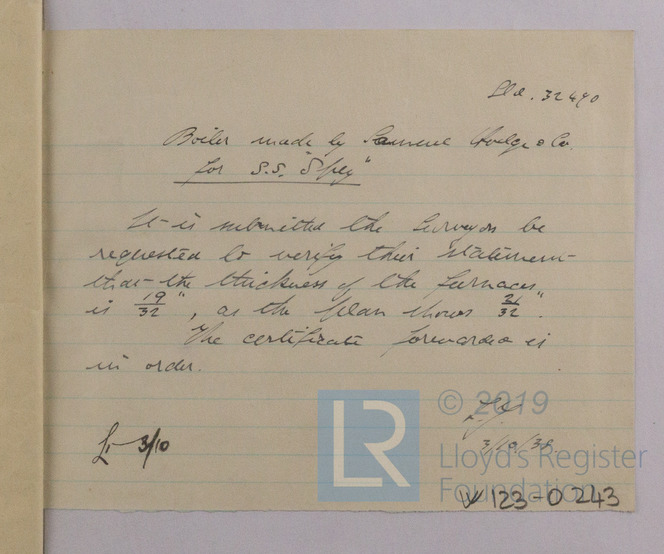 Lld. 32490
Boiler made by Samuel Hodge & Co.
for S.S. "Spey"
It is submitted the Surveyors be
requested to verify their statement
that the thickness of the furnaces
is 19/32", as the plan shows 21/32".
The certificate forwarded is
in order.
3/10
3/10/38
© 2019
LR
Lloyd's Register
Foundation
W 123-0243